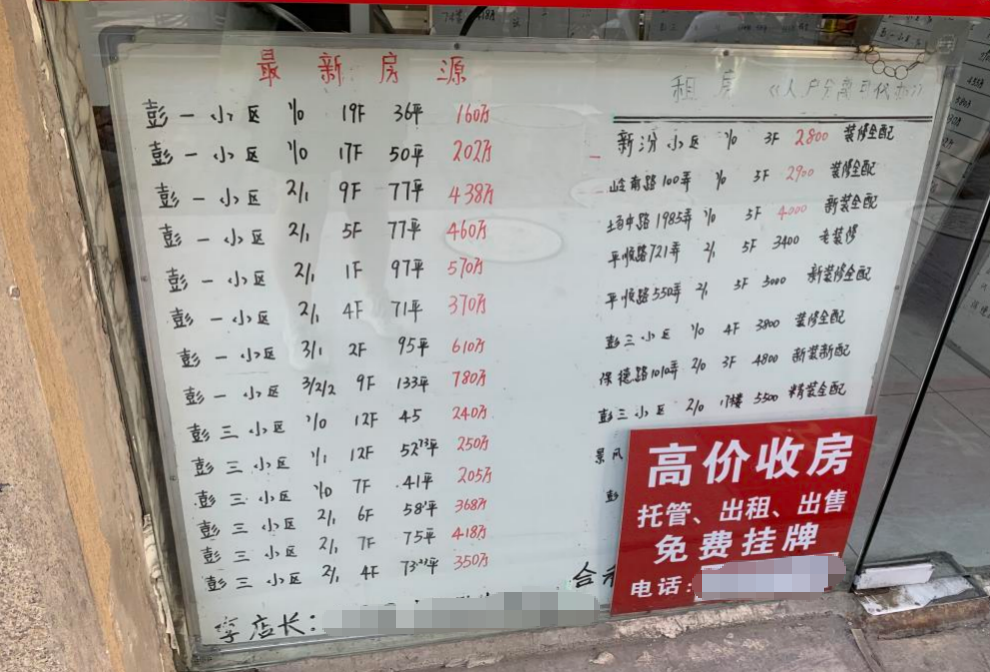 最新房源
彭一小区 1/0 19F 36平 160万
彭一小区 1/0 17F 50平 202万
彭一小区 2/1 9F 77平 438万
彭一小区 2/1 5F 77平 460万
彭一小区 2/1 1F 97平 570万
彭一小区 2/1 4F 71平 370万
彭一小区 3/1 2F 95平 610万
彭一小区 3/2/2 9F 133平 780万
彭三小区 1/0 12F 45 240万
彭三小区 1/1 12F 52.73平 250万
彭三小区 1/0 7F 41平 205万
彭三小区 2/1 6F 58平 368万
彭三小区 2/1 7F 75平 418万
彭三小区 2/1 4F 73平 350万
李店长:
租房
新汾小区 1/0 3F 2800 装修全配
岭南路100弄 1/0 3F 2900 装修全配
1985弄 1/0 3F 4000 新装全配
平顺路721弄 2/1 5F 3400 老装修
平顺路550弄 2/1 3F 3000 新装修全配
彭三小区 1/0 4F 3800 装修全配
保德路1010弄 2/0 3F 4800 新装新配
彭三小区 2/0 17楼 5500 精装全配
景风
彭
高价收房
托管、出租、出售
免费挂牌
电话: